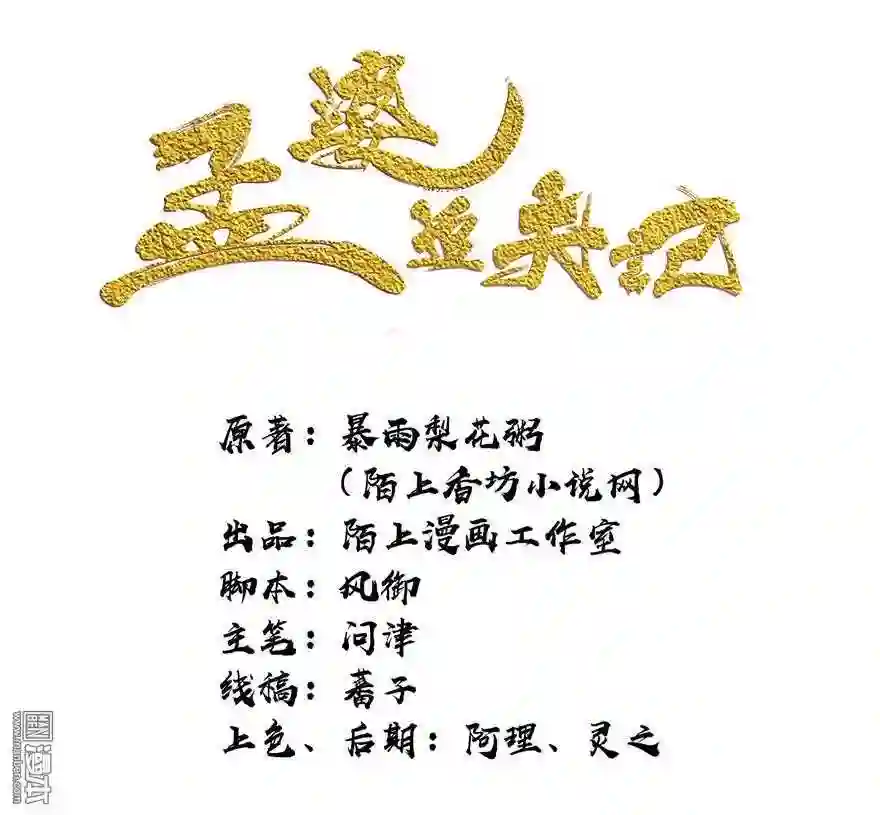 孟婆追夫记
原著：暴雨梨花粥
（陌上香坊小说网）
出品：陌上漫画工作室
脚本：风御
主笔：问津
线稿：蕃子
上色、后期：阿理、灵之
漫本
MAN
BEN
www.manben.com